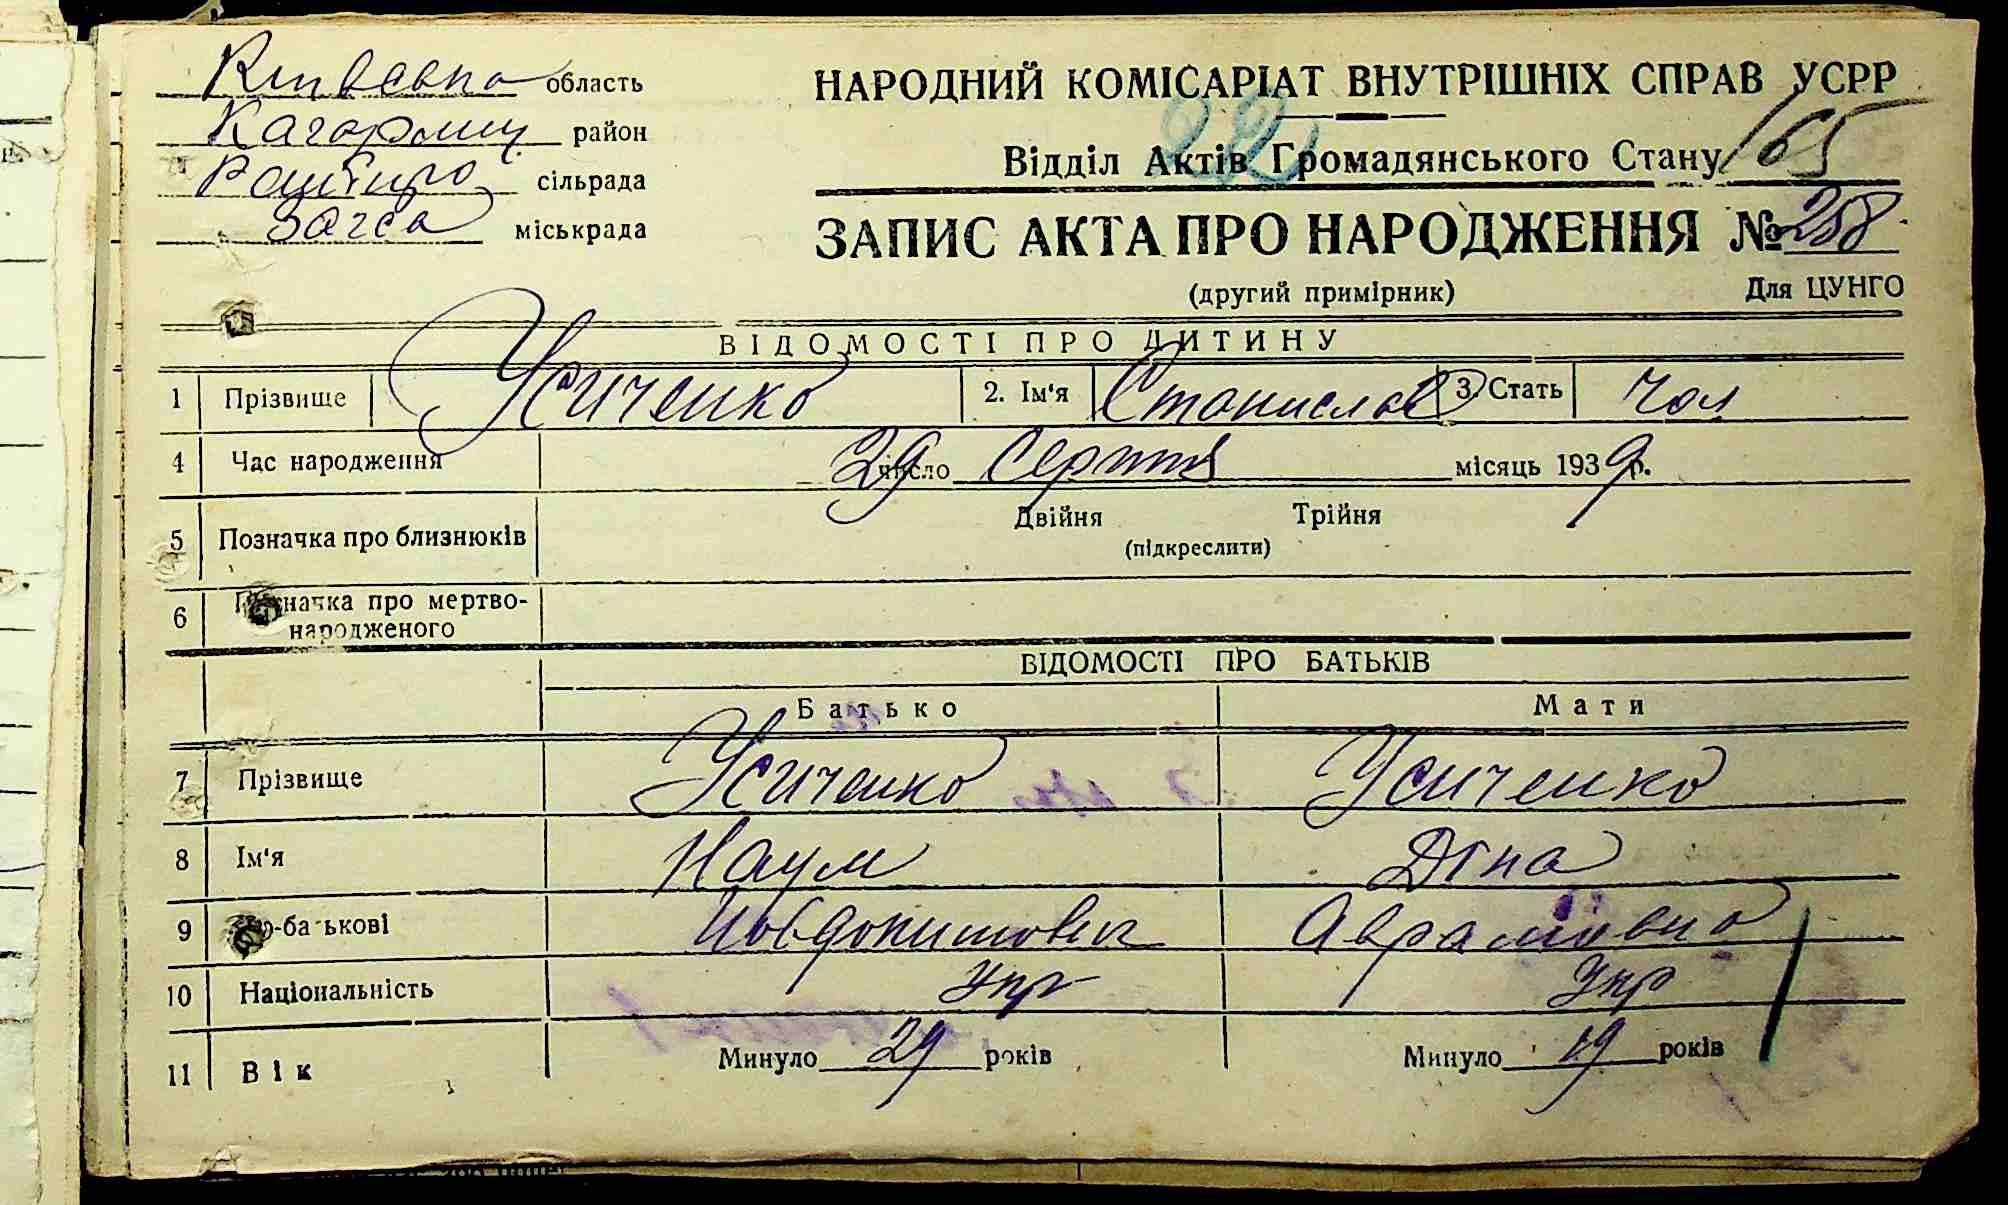 Київська область
Кагарлиц район
сільрада
Загса міськрада
НАРОДНИЙ КОМІСАРІАТ ВНУТРІШНІХ СПРАВ УСРР
22
Відділ Актів Громадянського Стану 165
ЗАПИС АКТА ПРО НАРОДЖЕННЯ № 258
(другий примірник) Для ЦУНГО
ВІДОМОСТІ ПРО ДИТИНУ
1 Прізвище Усиченко 2. Ім'я Станислав 3. Стать Чол
4 Час народження 29 число Серпня місяць 1939 р.
5 Позначка про близнюків Двійня Трійня
(підкреслити)
6 Позначка про мертво-
народженого
ВІДОМОСТІ ПРО БАТЬКІВ
Батько Мати
7 Прізвище Усиченко Усиченко
8 Ім'я Наум Діна
9 По-батькові Аврамовна
10 Національність Укр Укр
11 Вік Минуло 29 років Минуло 19 років